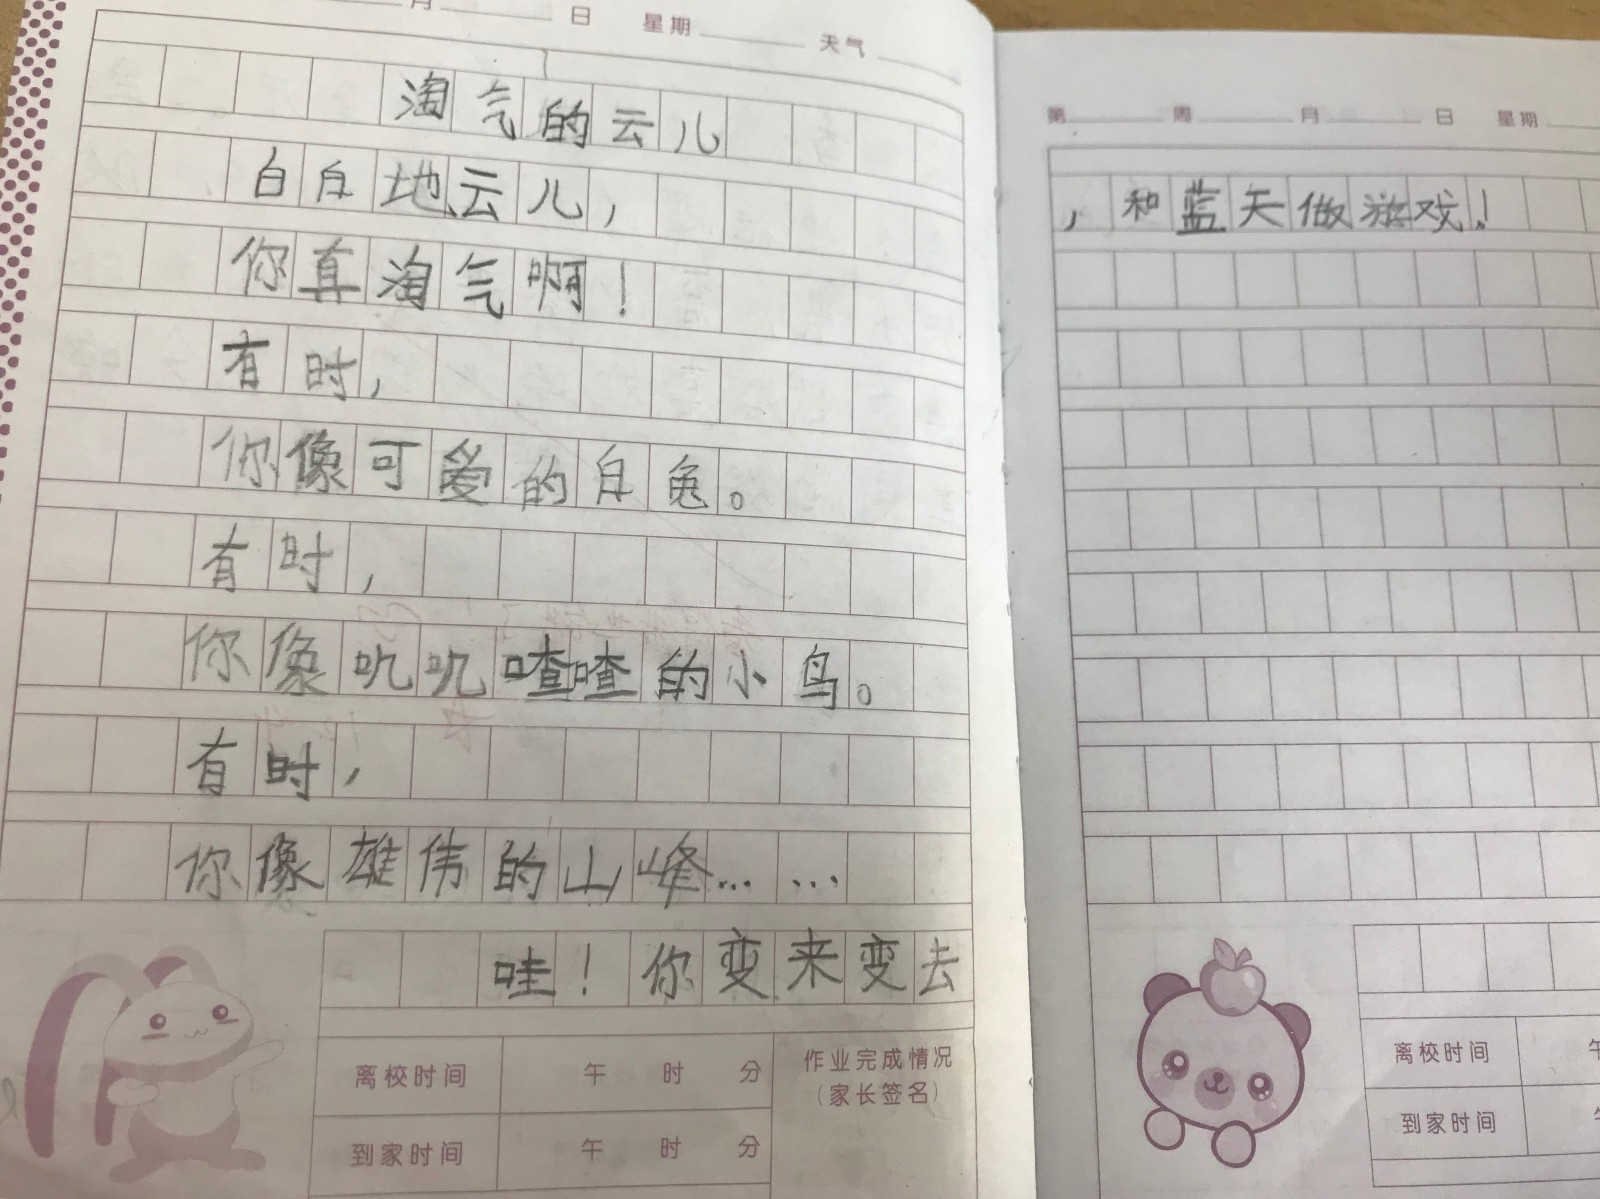 月 日 星期 天气
淘气的云儿
白白地云儿，
你真淘气啊！
有时，
你像可爱的白兔。
有时，
你像叽叽喳喳的小鸟。
有时，
你像雄伟的山峰……
哇！你变来变去
离校时间 午 时 分
到家时间 午 时 分
作业完成情况
（家长签名）
第 周 月 日 星期
，和蓝天做游戏！
离校时间 午
到家时间